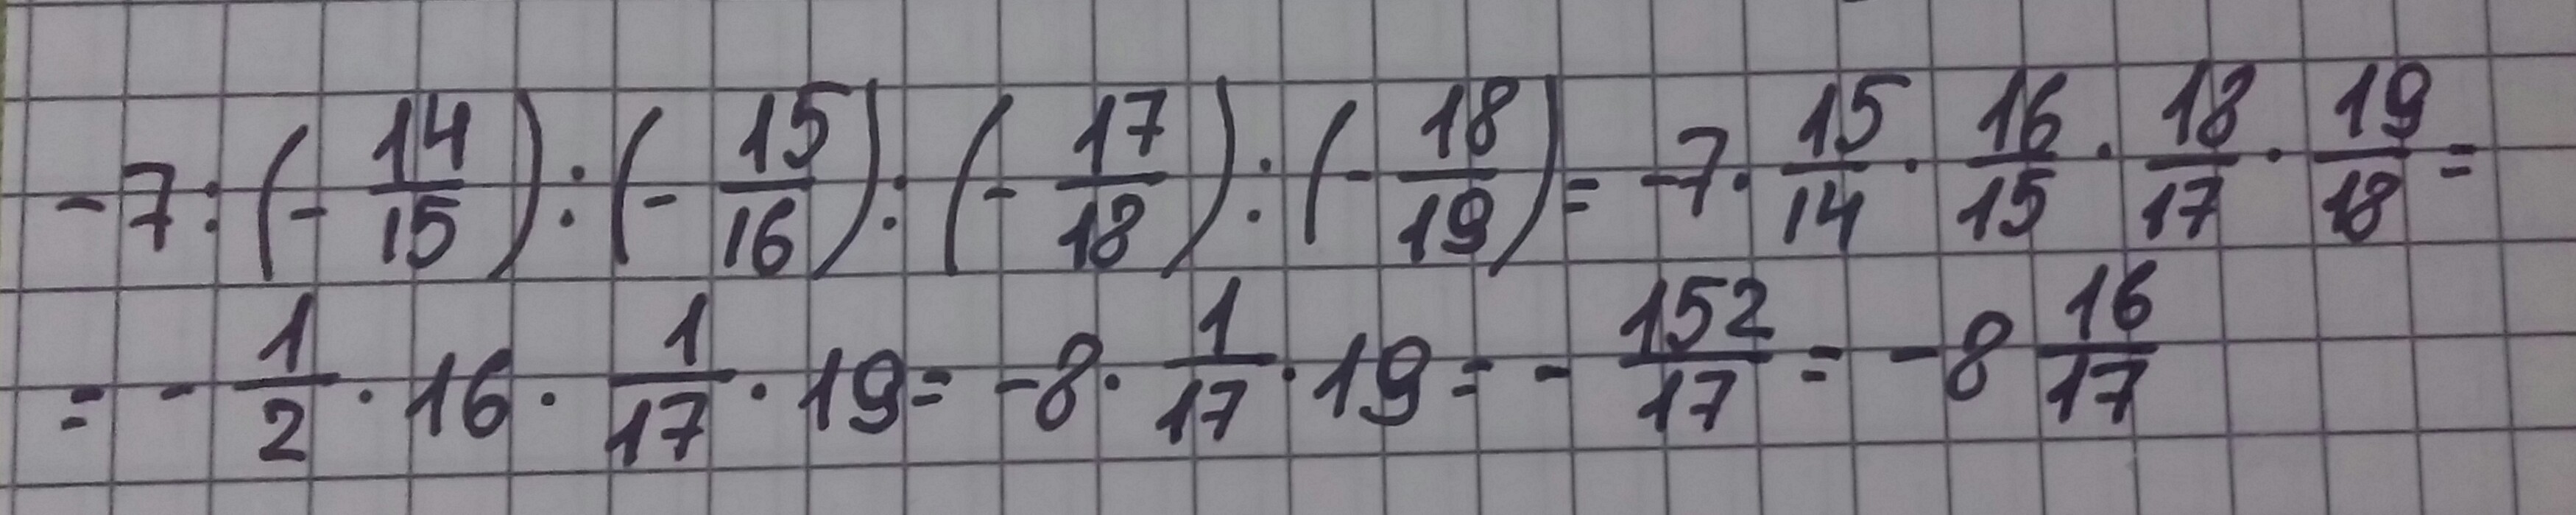 -7:(-14/15):(-15/16):(-17/18):(-18/19)=-7·15/14·16/15·18/17·19/18=
=-1/2·16·1/17·19=-8·1/17·19=-152/17=-8 16/17